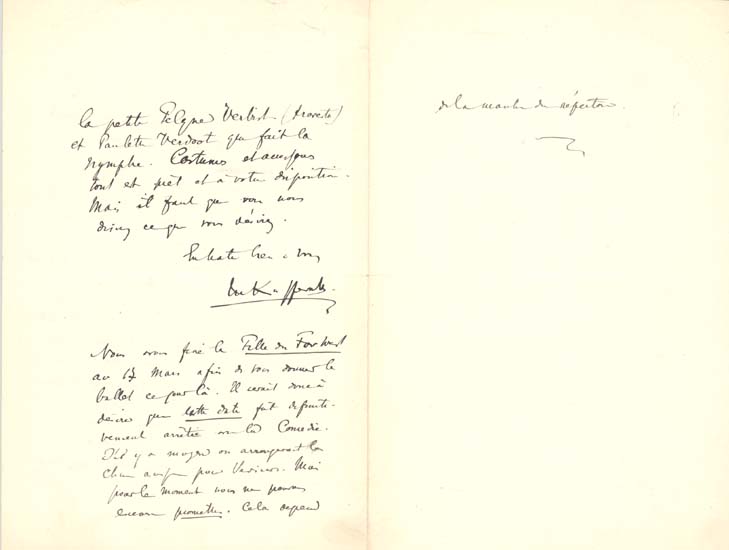 la petite Felyne Verbist (        )
et Paulette Verdoot qui fait la
nymphe. Costumes et accessoires
tout est prêt et à votre disposition.
Mais il faut que vous nous
disiez ce que vous désirez.
En hate bien à vous
Nous avons fixé la Fille du Far West
au 17 Mai afin de vous donner le
ballet ce jour là. Il serait donc à
désirer que cette date fut définiti-
vement arrêtée
S'il y a moyen on arrangerait la
chose aussi pour         . Mais
pour le moment nous ne pouvons
encore promettre. Cela dépend
de la marche du répertoire.